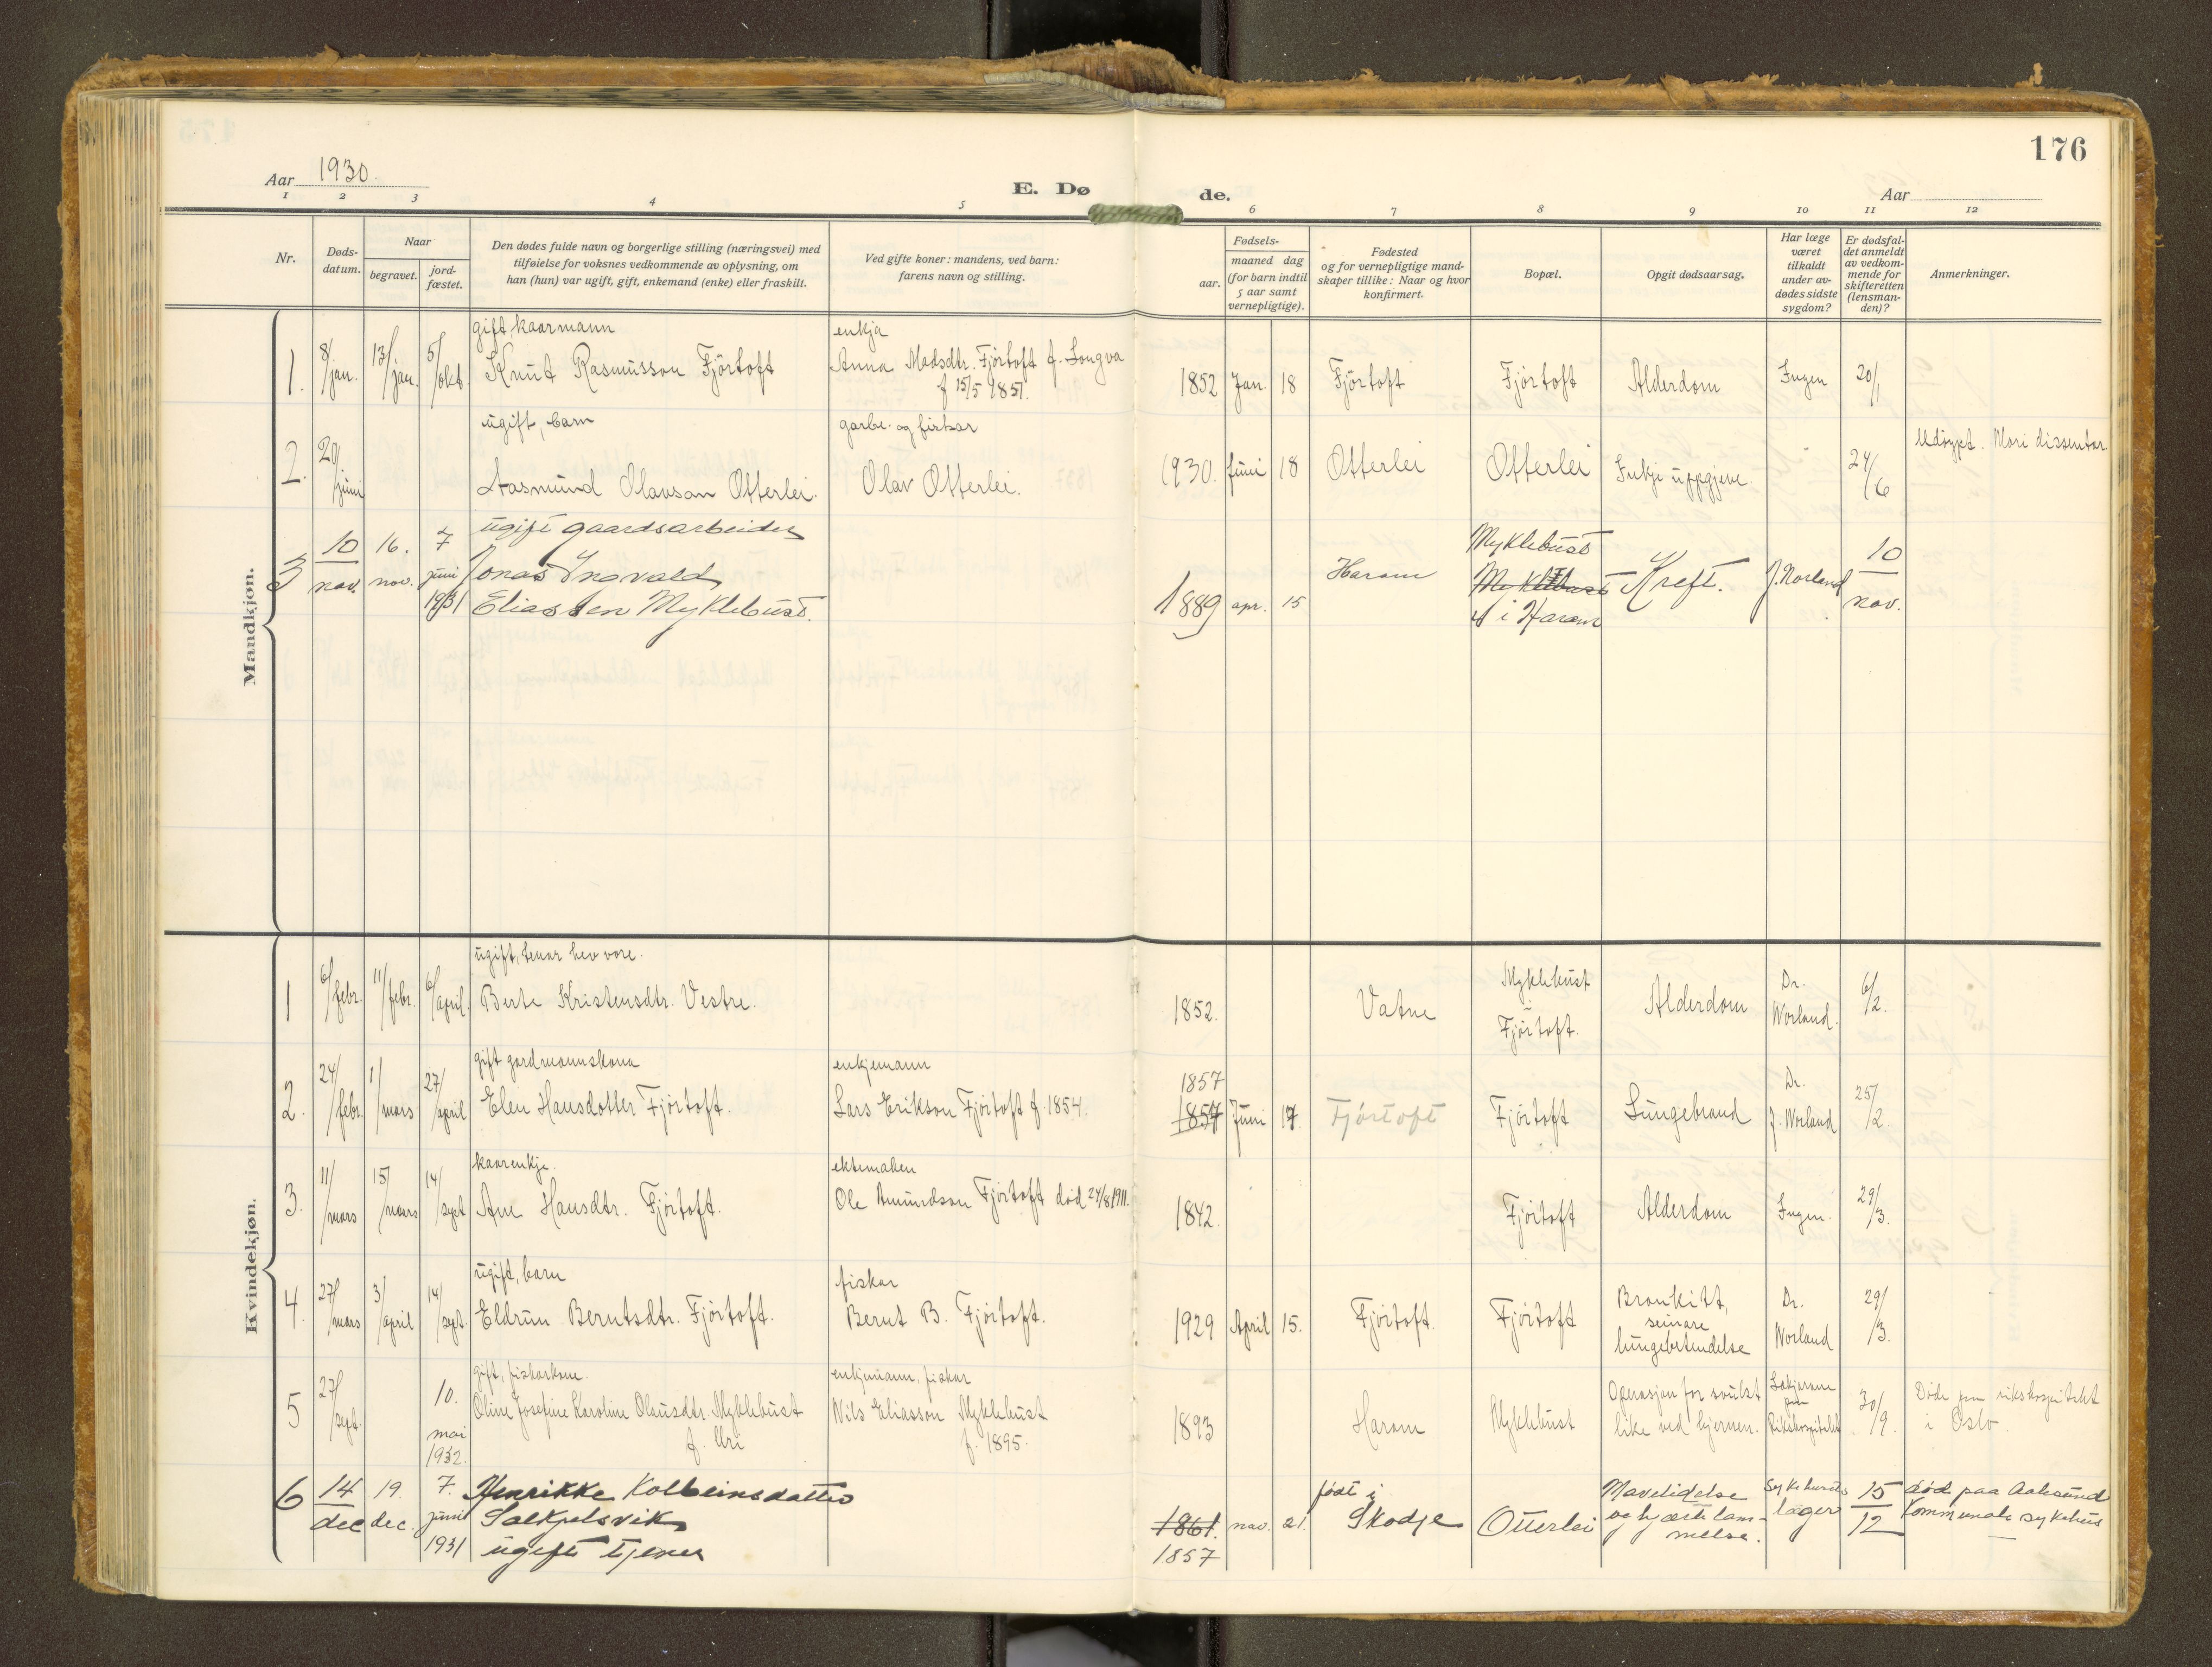 176
Aar 1930.
E. Dø de.
Aar
1 2 3 4 5 6 7 8 9 10 11 12
Nr.
Døds-
datum.
Naar
begravet.
jord-
fæstet.
Den dødes fulde navn og borgerlige stilling (næringsvei) med
tilføielse for voksnes vedkommende av oplysning, om
han (hun) var ugift, gift, enkemand (enke) eller fraskilt.
Ved gifte koner: mandens, ved barn:
farens navn og stilling.
Fødsels-
aar.
maaned dag
(for barn indtil
5 aar samt
vernepligtige).
Fødested
og for vernepligtige mand-
skaper tillike: Naar og hvor
konfirmert.
Bopæl.
Opgit dødsaarsag.
Har læge
været
tilkaldt
under av-
dødes sidste
sygdom?
Er dødsfal-
det anmeldt
av vedkom-
mende for
skifteretten
(lensman-
den)?
Anmerkninger.
Mandkjøn.
gift kaarmann enkja
1. 8/jan. 13/jan. 5/okt. Knut Rasmusson Fjörtoft Anna Madsdtr. Fjörtoft f. Longva 1852 Jan. 18 Fjörtoft Fjörtoft Alderdom Ingen 20/1
f 15/5 1851.
ugift, barn garbr. og fiskar
2. 20/juni Aasmund Olavson Otterlei. Olav Otterlei. 1930. juni 18 Otterlei Otterlei Inkje uppgjeve. 24/6 Udöypt. Mori dissentar.
ugift gaardsarbeider
3 10/nov. 16. nov. 7 juni 1931 Jonas Ingvald
Eliassen Myklebust. 1889 apr. 15 Haram Myklebust
Myklebust
i Haram Kreft. J. Norland 10/nov.
Kvindekjøn.
ugift, tenar hev vore.
1 6/febr. 11/febr. 6/april. Berte Kristensdtr. Vestre. 1852. Vatne Myklebust
Fjörtoft. Alderdom Dr.
Worland. 6/2.
gift gardmannskona enkjemann
2. 24/febr. 1/mars 27/april Elen Hansdotter Fjörtoft. Lars Erikson Fjörtoft f. 1854. 1857
1857 Juni 17 Fjörtoft Fjörtoft Lungebrand Dr.
J. Worland 25/2.
kaarenkje. ektemaken
3. 11/mars 15/mars 14/sept Ane Hansdtr. Fjörtoft. Ole Amundson Fjörtoft död 24/8 1911. 1842. Fjörtoft Alderdom Ingen. 29/3.
ugift, barn fiskar
4. 27/mars 3/april 14/sept. Eldrun Berntsdtr. Fjörtoft. Bernt B. Fjörtoft. 1929 April 15. Fjörtoft. Fjörtoft Bronkitt,
seinare
lungebetendelse Dr.
Worland 29/3.
gift, fiskarkone. enkjemann, fiskar
5 27/sept. 10. mai 1932. Oline Josefine Karoline Olausdtr. Myklebust
f. Uri Nils Eliasson Myklebust
f. 1895. 1893 Haram Myklebust Operasjon for svulst
like ved hjernen. Lækjarane
paa
Rikshospitalet 30/9. Döde paa rikshospitalet
i Oslo.
6 14/dec 19. dec. 7. juni 1931 Henrikke Kolbeinsdatter
Solkjelsvik
ugift tjener 1861. nov. 21.
1857 født i
Skodje Otterlei Mavelidelse
og hjertelam-
melse. Sykehusets
læger 15/12 død paa Aalesund
kommunale sykehus